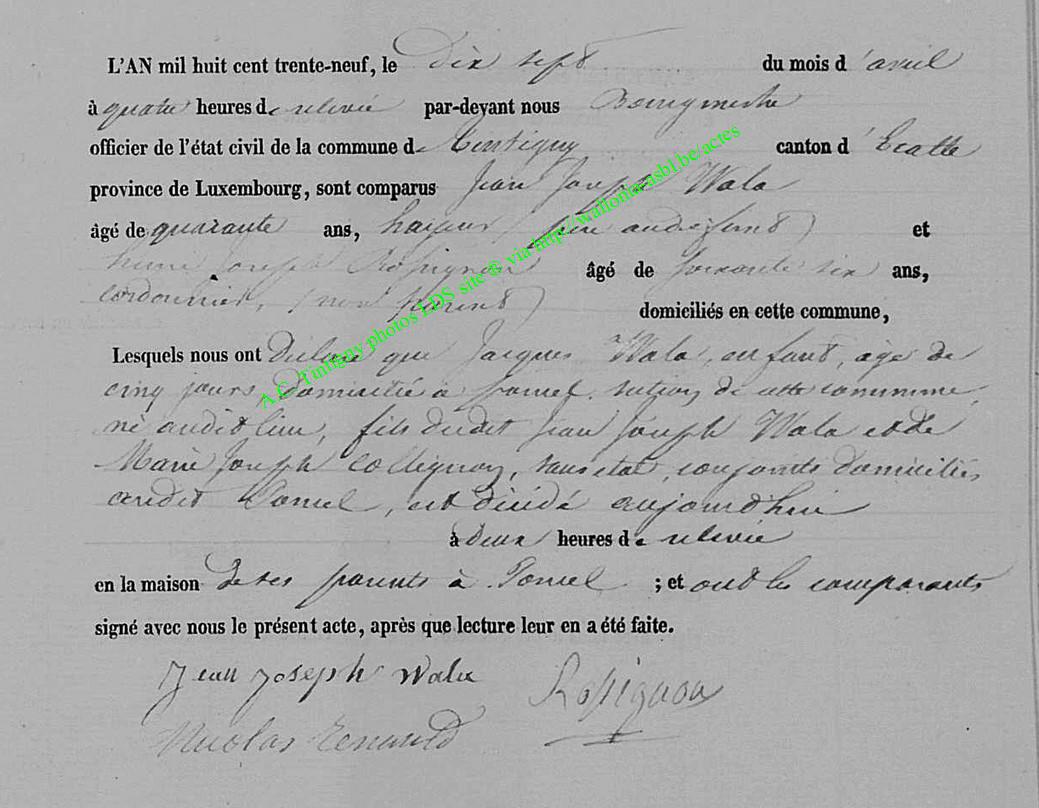 L'AN mil huit cent trente-neuf, le dix sept du mois d'avril
à quatre heures de relevée par-devant nous Bourgmestre
officier de l'état civil de la commune de Tintigny canton d'Etalle
province de Luxembourg, sont comparus Jean Joseph Wala
âgé de quarante ans, père audit enfant) et
Joseph Rossignon âgé de soixante six ans,
cordonnier, (non parent) domiciliés en cette commune,
Lesquels nous ont Déclaré que Jacques Wala, enfant, âgé de
cinq jours, domicilié à section de cette commune,
né audit lieu, fils dudit Jean Joseph Wala et de
Marie Joseph Collignon, sans état, conjoints domiciliés
audit est décédé aujourd'hui
à Deux heures de relevée
en la maison de ses parents à ; et ont les comparants
signé avec nous le présent acte, après que lecture leur en a été faite.
Jean Joseph Wala Rossignon
Nicolas
A.C. Tintigny photos LDS site ® via http//wallonia-asbl.be/actes